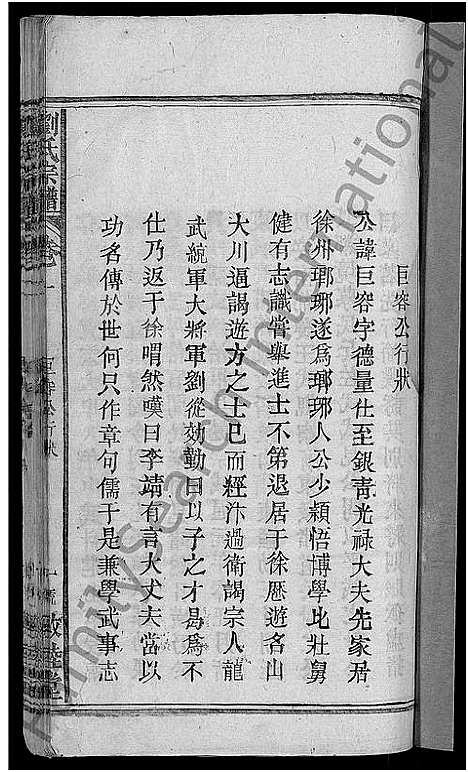 巨容公行狀
公諱巨容字德量仕至銀青光祿大夫先家居
徐州瑯琊遂爲瑯琊人公少穎悟博學比壯舅
健有志識嘗舉進士不第退居于徐歷遊名山
大川遍謁遊方之士巳而經汴過衛謁宗人龍
武統軍大將軍劉從効勤曰以子之才曷爲不
仕乃返于徐喟然嘆曰李靖有言大丈夫當以
功名傳於世何只作章句儒于是兼學武事志
劉氏宗譜 卷一 巨容公行狀 敦睦堂
FamilySearch International